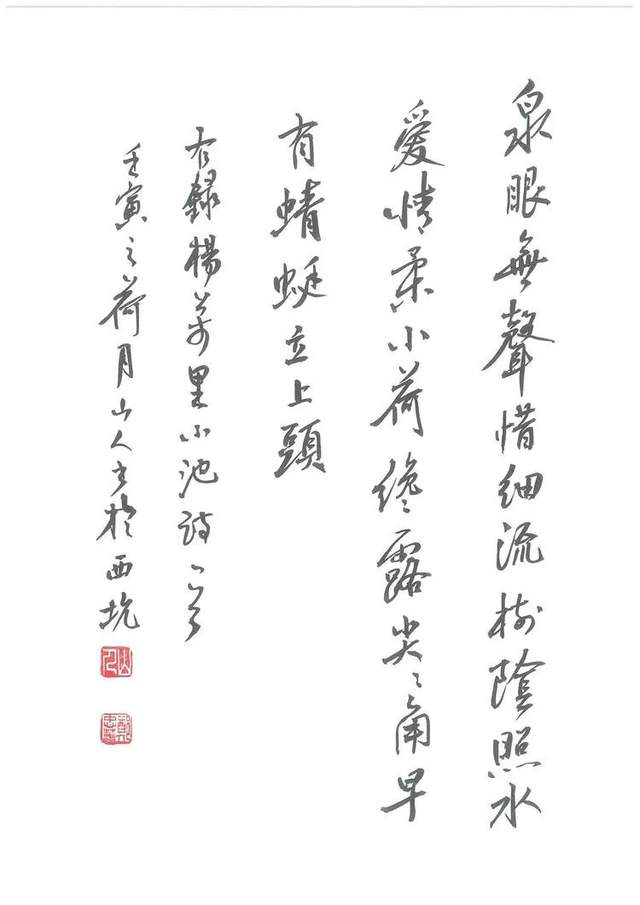 泉眼無聲惜細流樹陰照水
愛情柔小荷纔露尖々角早
有蜻蜓立上頭
右録楊萬里小池詩一首
壬寅之荷月山人书於西坑
山人